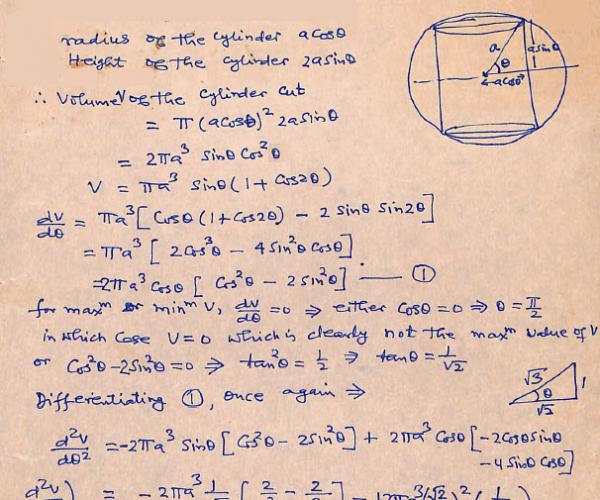 radius of the cylinder a cosθ
Height of the cylinder 2a sinθ
a
θ
a sinθ
a cosθ
∴ Volume V of the cylinder cut
= π (a cosθ)² 2a sinθ
= 2πa³ sinθ cos²θ
V = πa³ sinθ (1 + cos2θ)
dv/dθ = πa³ [cosθ (1 + cos2θ) − 2 sinθ sin2θ]
= πa³ [2cos³θ − 4 sin²θ cosθ]
= 2πa³ cosθ [cos²θ − 2 sin²θ] — ①
for maxᵐ or minᵐ V, dv/dθ = 0 ⇒ either cosθ = 0 ⇒ θ = π/2
in which case V = 0 which is clearly not the maxᵐ value of V
or cos²θ − 2sin²θ = 0 ⇒ tan²θ = 1/2 ⇒ tanθ = 1/√2
√3
1
θ
√2
Differentiating ①, once again ⇒
d²v/dθ² = −2πa³ sinθ [cos²θ − 2sin²θ] + 2πa³ cosθ [−2cosθ sinθ
− 4 sinθ cosθ]